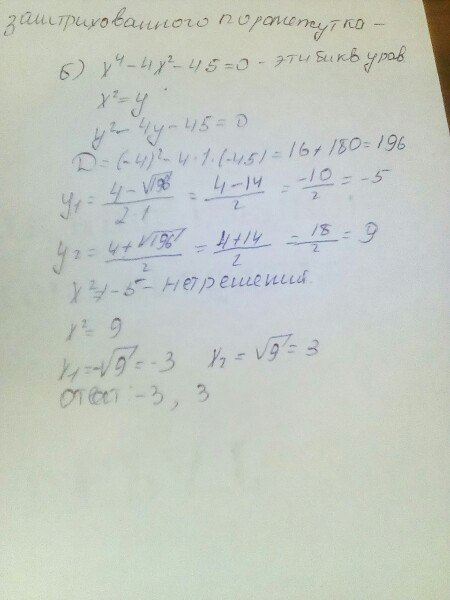 заштрихованного проможутка –
б) x⁴ – 4x² – 45 = 0 – эти бикв урав
x² = y
y² – 4y – 45 = 0
D = (-4)² – 4 · 1 · (-45) = 16 + 180 = 196
y₁ = (4 – √196)/(2·1) = (4 – 14)/2 = -10/2 = -5
y₂ = (4 + √196)/2 = (4 + 14)/2 = 18/2 = 9
x² ≠ -5 – нет решений.
x² = 9
x₁ = -√9 = -3 x₂ = √9 = 3
ответ: -3, 3